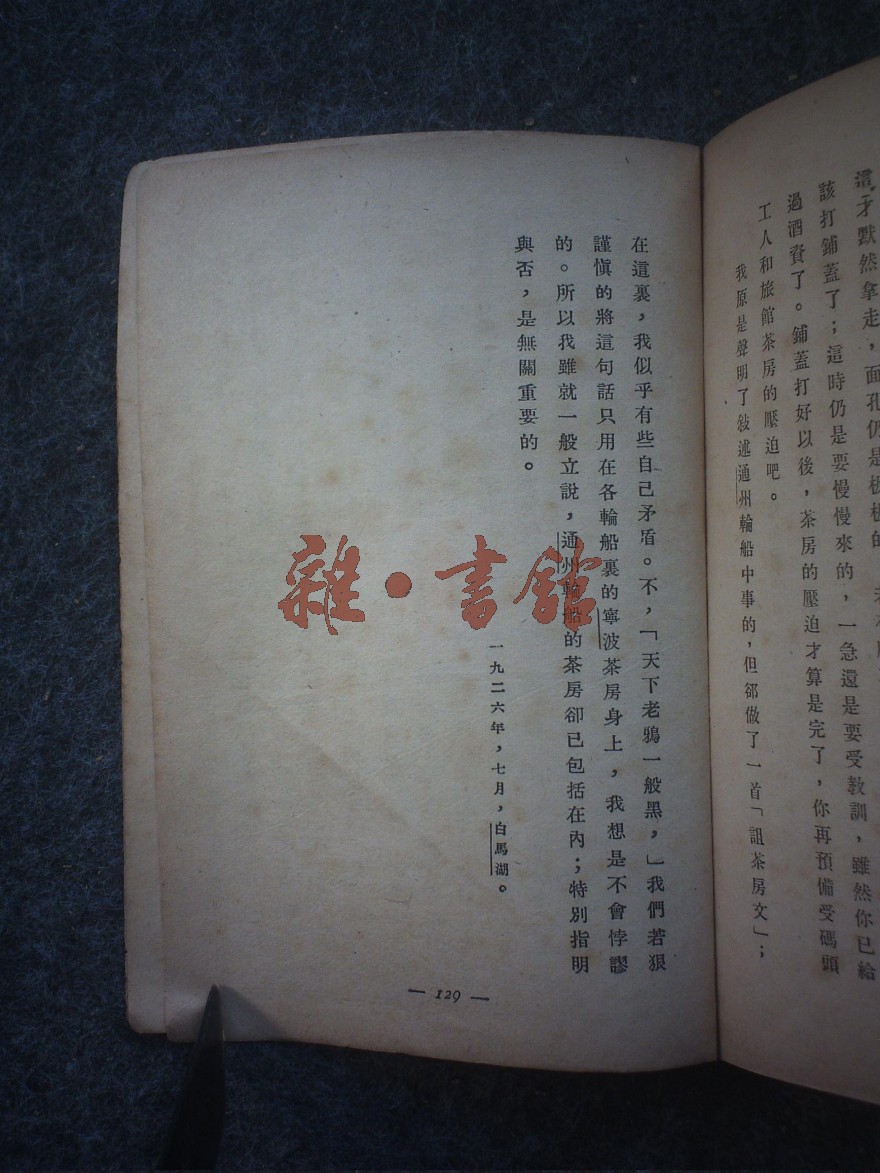 這才默然拿走，面孔仍是板板的
該打鋪蓋了；這時仍是要慢慢來的，一急還是要受教訓，雖然你已給
過酒資了。鋪蓋打好以後，茶房的壓迫才算是完了，你再預備受碼頭
工人和旅館茶房的壓迫吧。
我原是聲明了敍述通州輪船中事的，但卻做了一首「詛茶房文」；
在這裏，我似乎有些自己矛盾。不，「天下老鴉一般黑，」我們若狠
謹慎的將這句話只用在各輪船裏的寧波茶房身上，我想是不會悖謬
的。所以我雖就一般立說，通州輪船的茶房卻已包括在內；特別指明
與否，是無關重要的。
一九二六年，七月，白馬湖。
— 129 —
雜・書館